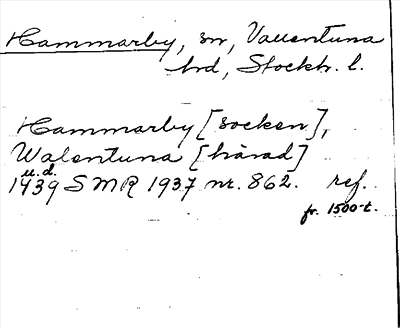 Hammarby, sn, Vallentuna
hd, Stockh. l.
Hammarby [socken],
Walentuna [härad]
u.d.
1439 SMR 1937 nr. 862. ref.
fr. 1500-t.